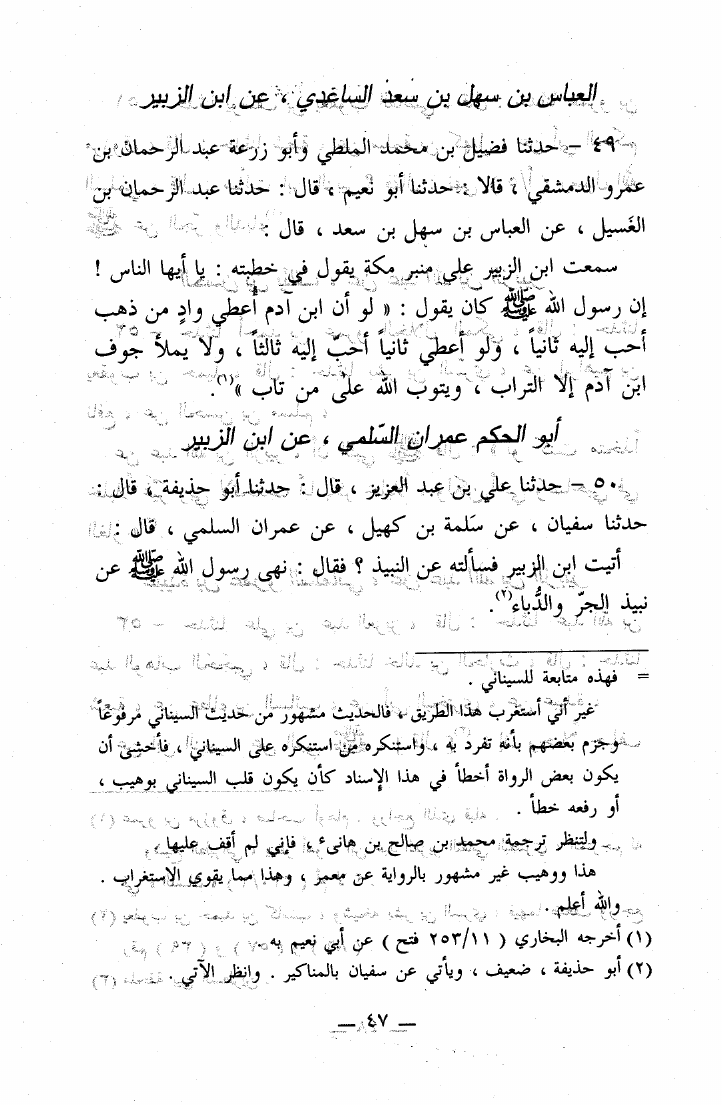 العباس بن سهل بن سعد الساعدي ، عن ابن الزبير
٤٩ – حدثنا فضيل بن محمد الملطي وأبو زرعة عبد الرحمان بن
عمرو الدمشقي ، قالا : حدثنا أبو نعيم ، قال : حدثنا عبد الرحمان بن
الغَسيل ، عن العباس بن سهل بن سعد ، قال :
سمعت ابن الزبير علي منبر مكة يقول في خطبته : يا أيها الناس !
إن رسول الله ﷺ كان يقول : « لو أن ابن آدم أُعطي وادٍ من ذهب
أحب إليه ثانياً ، ولو أعطي ثانياً أحبّ إليه ثالثاً ، ولا يملأ جوف
ابن آدم إلا التراب ، ويتوب الله على من تاب »(١).
أبو الحكم عمران السّلمي ، عن ابن الزبير
٥٠ – حدثنا علي بن عبد العزيز ، قال : حدثنا أبو حذيفة ، قال :
حدثنا سفيان ، عن سَلمة بن كهيل ، عن عمران السلمي ، قال :
أتيت ابن الزبير فسألته عن النبيذ ؟ فقال : نهى رسول الله ﷺ عن
نبيذ الجرّ والدُّباء(٢).
= فهذه متابعة للسيناني .
غير أني أستغرب هذا الطريق ، فالحديث مشهور من حديث السيناني مرفوعاً
وجزم بعضهم بأنه تفرد به ، واستنكره من استنكره على السيناني ، فأخشى أن
يكون بعض الرواة أخطأ في هذا الإسناد كأن يكون قلب السيناني بوهيب ،
أو رفعه خطأ .
ولتنظر ترجمة محمد بن صالح بن هانىء ، فإني لم أقف عليها ،
هذا ووهيب غير مشهور بالرواية عن معمر ، وهذا مما يقوي الاستغراب .
والله أعلم .
(١) أخرجه البخاري ( ٢٥٣/١١ فتح ) عن أبي نعيم به .
(٢) أبو حذيفة ، ضعيف ، ويأتي عن سفيان بالمناكير . وانظر الآتي .
— ٤٧ —